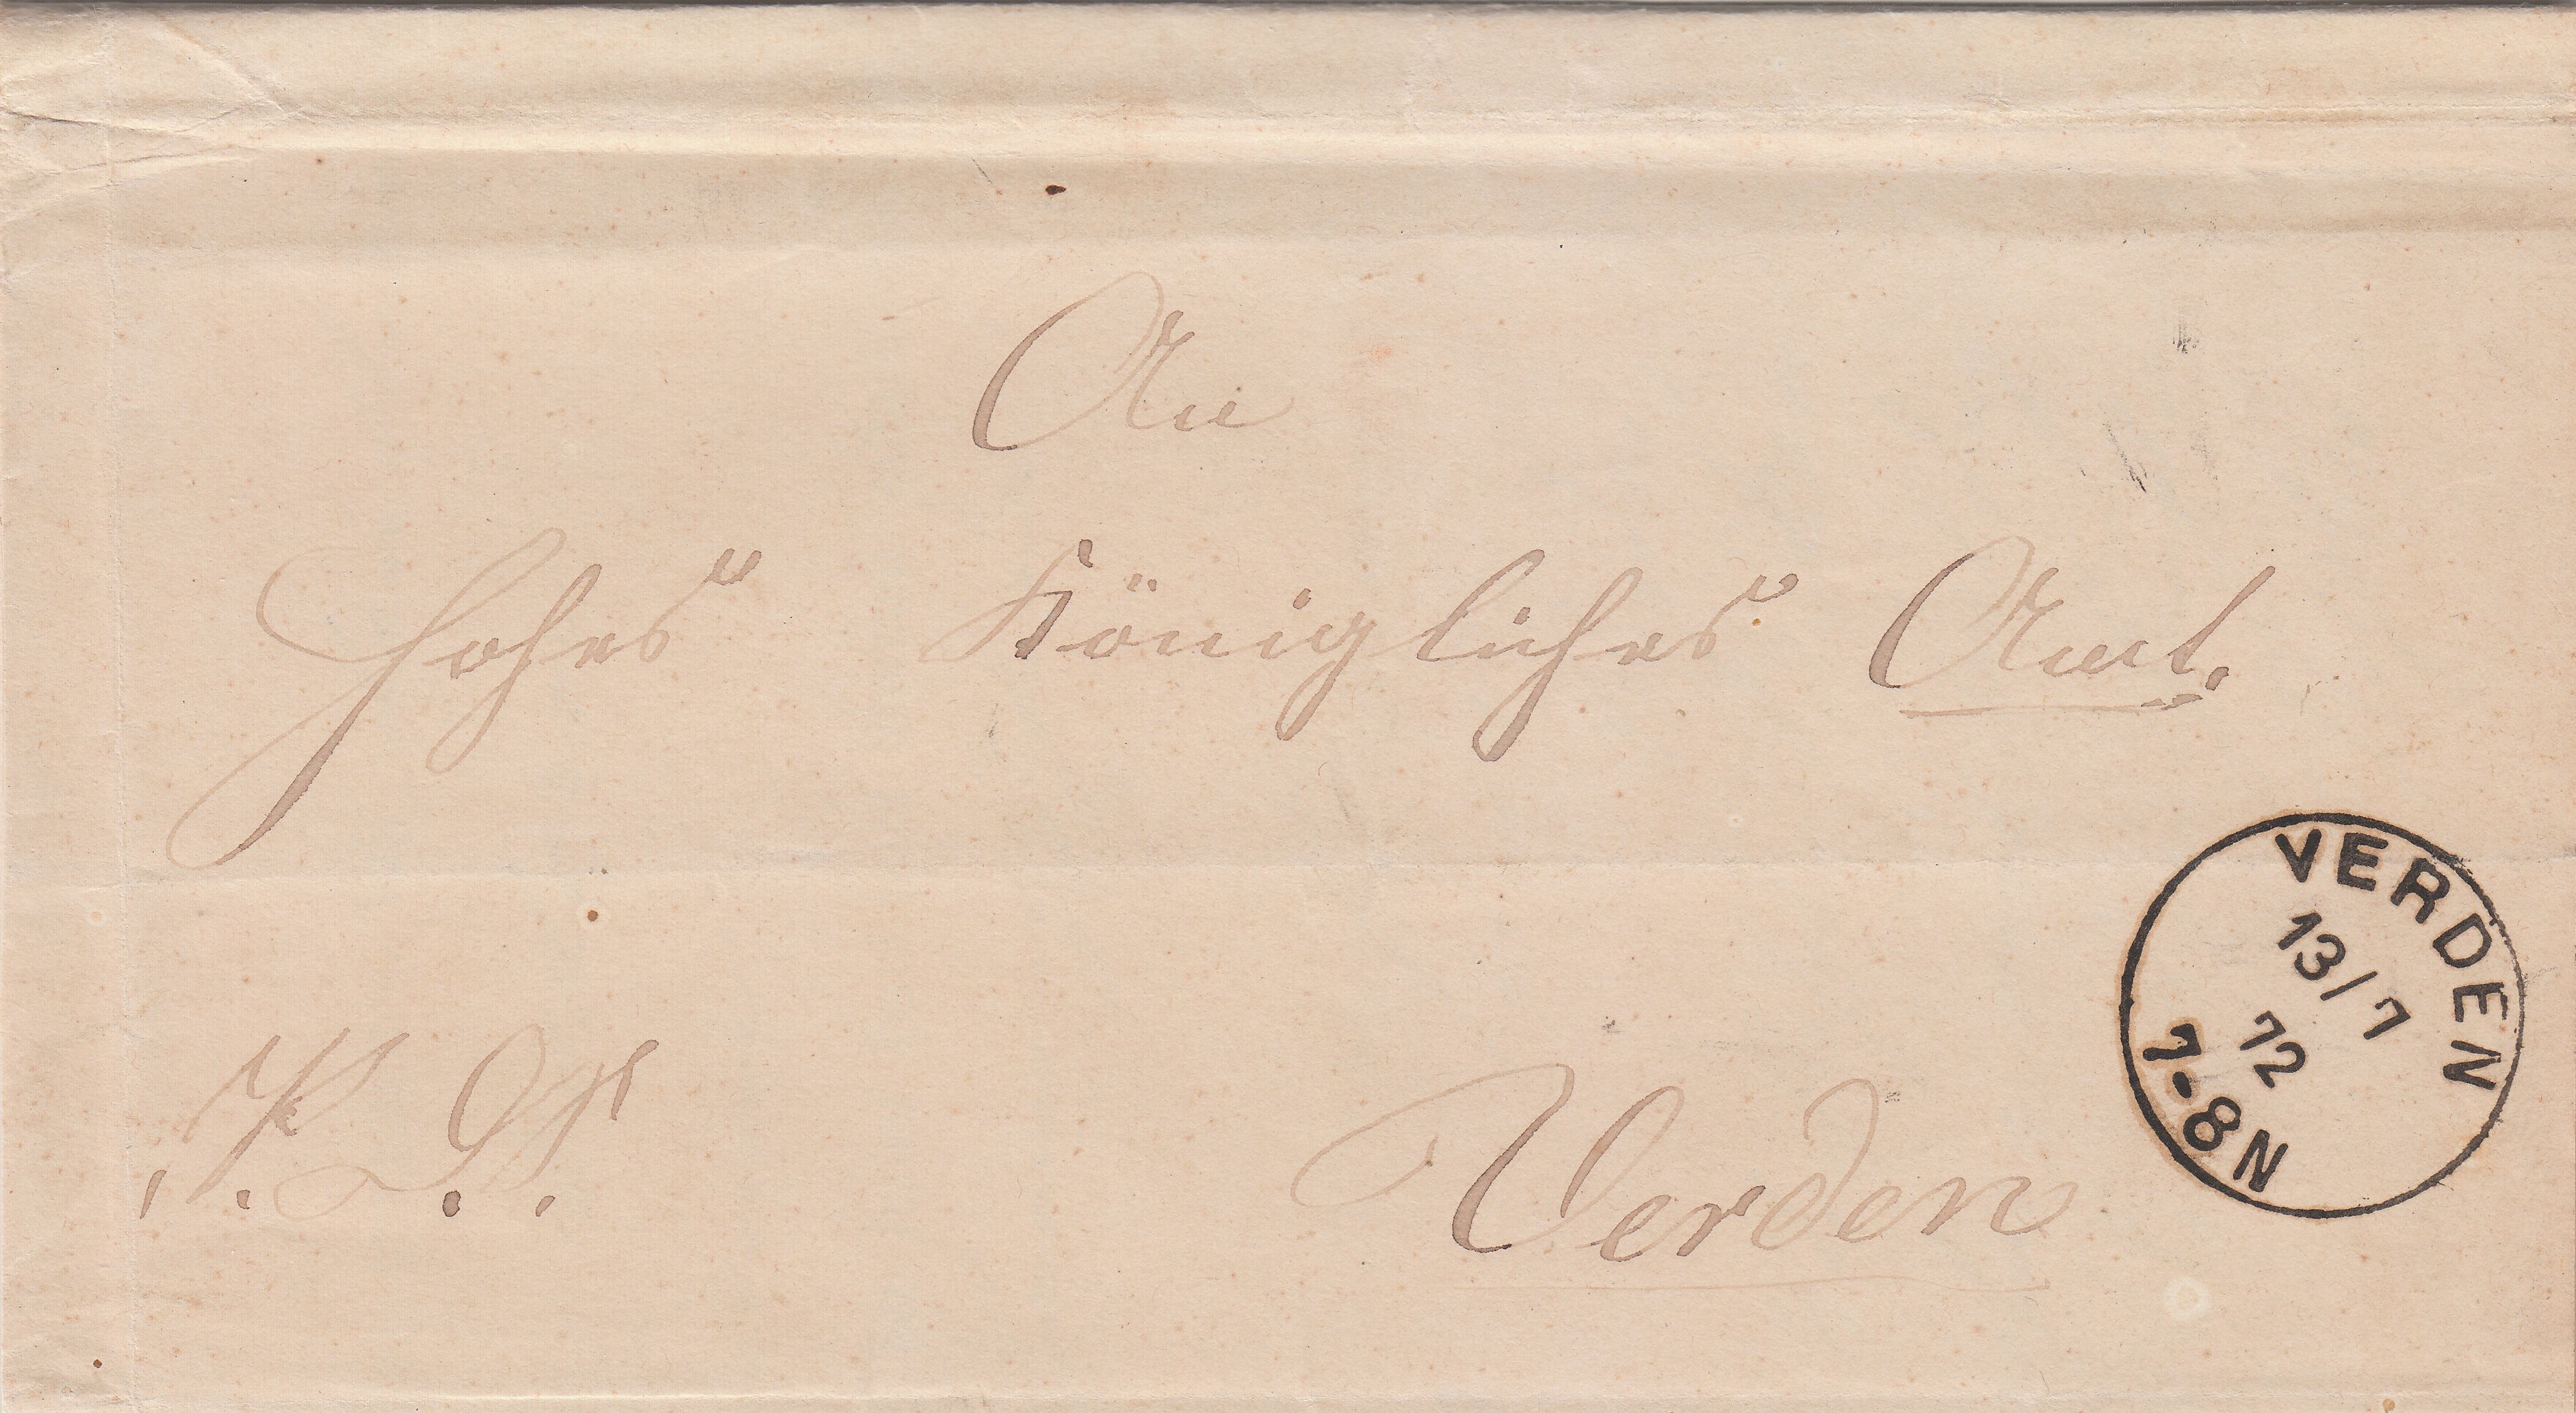 An
Hohes Königliches Amt.
VERDEN
13/7
72
7-8N
Verden